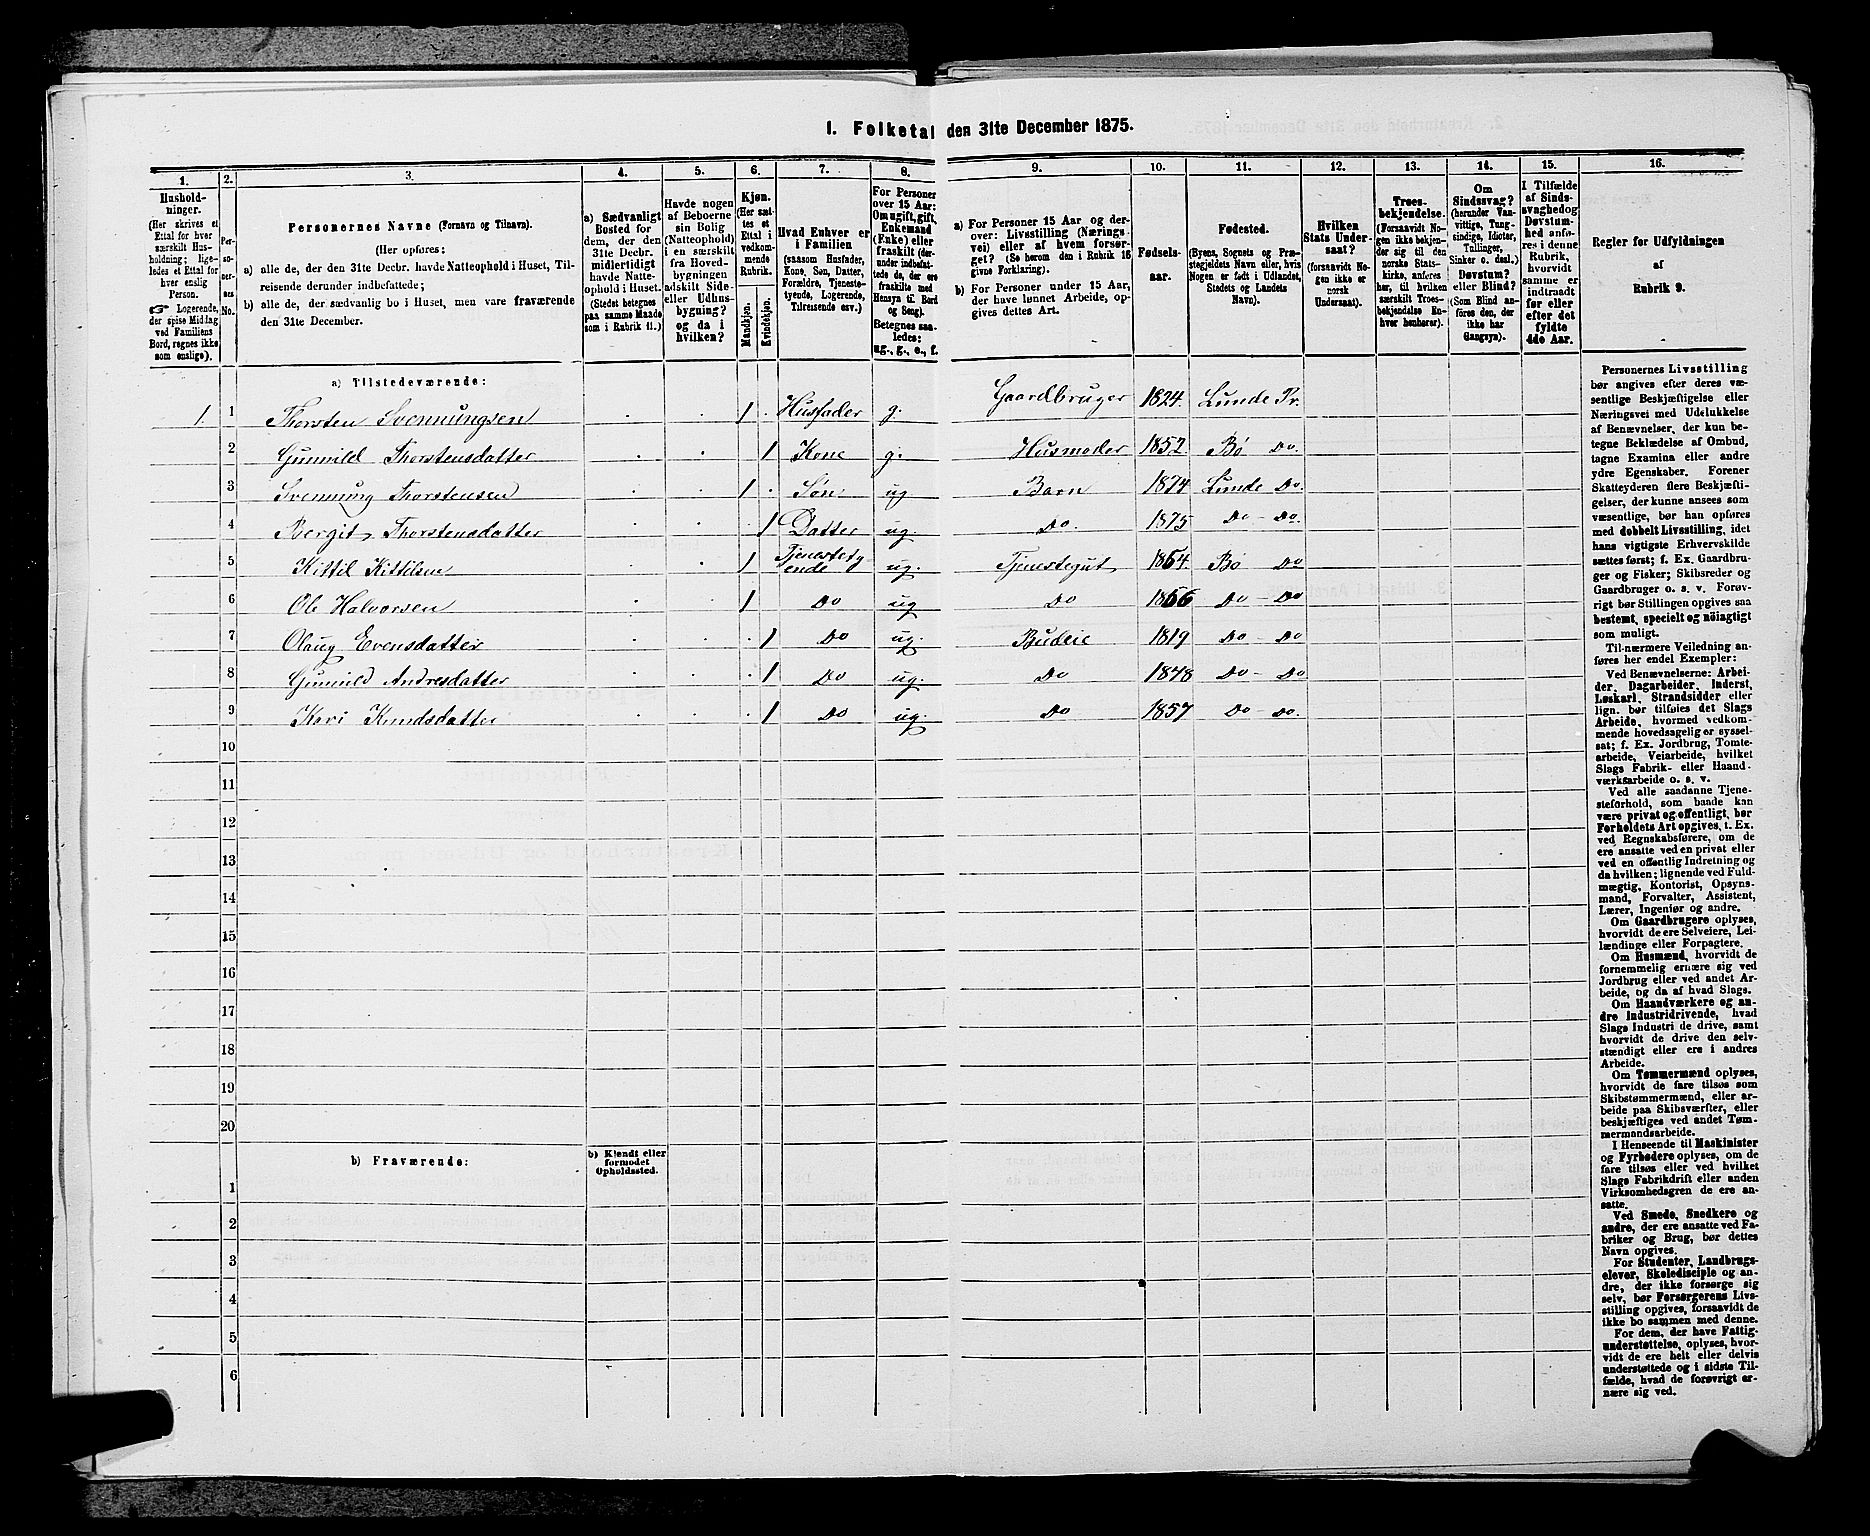 1. Folketal den 31te December 1875.
1.
Hushold-
ninger.
(Her skrives et
Ettal for hver
særskilt Hus-
holdning; lige-
ledes et Ettal for
hver enslig
Person.
Logerende,
der spise Middag
ved Familiens
Bord, regnes ikke
som enslige).
2.
Per-
so-
ner-
nes
No.
3.
Personernes Navne (Fornavn og Tilnavn).
(Her opføres:
a) alle de, der den 31te Decbr. havde Natteophold i Huset, Til-
reisende derunder indbefattede;
b) alle de, der sædvanlig bo i Huset, men vare fraværende
den 31te December.
4.
a) Sædvanligt
Bosted for
dem, der den
31te Decbr.
midlertidigt
havde Natte-
ophold i Huset.
(Stedet betegnes
paa samme Maade
som i Rubrik 11.)
5.
Havde nogen
af Beboerne
sin Bolig
(Natteophold)
i en særskilt
fra Hoved-
bygningen
adskilt Side-
eller Udhus-
bygning?
og da i
hvilken?
6.
Kjøn.
(Her sæt-
tes et
Ettal i
vedkom-
mende
Rubrik.
Mandkjøn.
Kvindekjøn.
7.
Hvad Enhver er
i Familien
(saasom Husfader,
Kone, Søn, Datter,
Forældre, Tjeneste-
tyende, Logerende,
Tilreisende osv.)
8.
For Personer
over 15 Aar:
Om ugift, gift,
Enkemand
(Enke) eller
fraskilt (der-
under indbefat-
tede de, der ere
fraskilte med
Hensyn til Bord
og Seng).
Betegnes saa-
ledes:
ug., g., e., f.
9.
a) For Personer 15 Aar og der-
over: Livsstilling (Nærings-
vei) eller af hvem forsør-
get? (Se herom den i Rubrik 16
givne Forklaring).
b) For Personer under 15 Aar,
der have lønnet Arbeide, op-
gives dettes Art.
10.
Fødsels-
aar.
11.
Fødested.
(Byens, Sognets og Præ-
stegjeldets Navn eller, hvis
Nogen er født i Udlandet,
Stedets og Landets
Navn).
12.
Hvilken
Stats Under-
saat?
(forsaavidt No-
gen ikke er
norsk
Undersaat).
13.
Troes-
bekjendelse.
(Forsaavidt No-
gen ikke bekjen-
der sig til den
norske Stats-
kirke, anføres
her, til hvilken
særskilt Troes-
bekjendelse En-
hver henhører).
14.
Om
Sindssvag?
(herunder Van-
vittige, Tung-
sindige, Idioter,
Tullinger,
Sinker o. desl.)
Døvstum?
eller Blind?
(Som Blind an-
føres den, der
ikke har
Gangsyn).
15.
I Tilfælde
af Sinds-
svaghed og
Døvstum-
hed anfø-
res i denne
Rubrik,
hvorvidt
samme er
indtraadt
før eller
efter det
fyldte
4de Aar.
16.
Regler for Udfyldningen
af
Rubrik 9.
a) Tilstedeværende:
1. 1 Thorsten Svennungsen 1 Husfader g. Gaardbruger 1824. Lunde Pr.
2 Gunnild Thorstensdatter 1 Kone g. Husmoder 1852 Bø Do.
3 Svennung Thorstensen 1 Søn ug Barn 1874 Lunde Do.
4 Bergit Thorstensdatter 1 Datter ug Do. 1875 Do - Do.
5 Kittil Kittilsen 1 Tjenestety
ende ug. Tjenestegut 1864. Bø Do
6 Ole Halvorsen 1 Do ug Do 1866 Do - Do
7 Olaug Evensdatter 1 Do ug. Budeie 1819 Do - Do
8 Gunnild Andresdatter 1 Do ug. Do 1848 Do - Do
9 Kari Knudsdatter 1 Do ug. Do 1857 Do - Do.
10
11
12
13
14
15
16
17
18
19
20
b) Fraværende: b) Kjendt eller
formodet
Opholdssted.
1
2
3
4
5
6
Personernes Livsstilling
bør angives efter deres væ-
sentlige Beskjæftigelse eller
Næringsvei med Udelukkelse
af Benævnelser, der kun be-
tegne Beklædelse af Ombud,
tagne Examina eller andre
ydre Egenskaber. Forener
Skatteyderen flere Beskjæfti-
gelser, der kunne ansees som
væsentlige, bør han opføres
med dobbelt Livsstilling, idet
hans vigtigste Erhvervskilde
sættes først; f. Ex. Gaardbru-
ger og Fisker; Skibsreder og
Gaardbruger o. s. v. Forøv-
rigt bør Stillingen opgives saa
bestemt, specielt og nöiagtigt
som muligt.
Til nærmere Veiledning an-
føres her endel Exempler:
Ved Benævnelserne: Arbei-
der, Dagarbeider, Inderst,
Løskarl, Strandsidder eller
lign. bør tilføies det Slags
Arbeide, hvormed vedkom-
mende hovedsagelig er syssel-
sat; f. Ex. Jordbrug, Tomte-
arbeide, Veiarbeide, hvilket
Slags Fabrik- eller Haand-
værksarbeide o. s. v.
Ved alle saadanne Tjene-
steforhold, som baade kan
være privat og offentligt, bør
Forholdets Art opgives, t. Ex.
ved Regnskabsførere, om de
ere ansatte ved en privat eller
ved en offentlig Indretning og
da hvilken; lignende ved Fuld-
mægtig, Kontorist, Opsyns-
mand, Forvalter, Assistent,
Lærer, Ingeniør og andre.
Om Gaardbrugere oplyses,
hvorvidt de ere Selveiere, Lei-
lændinge eller Forpagtere.
Om Husmænd, hvorvidt de
fornemmelig ernære sig ved
Jordbrug eller ved andet Ar-
beide, og da af hvad Slags.
Om Haandværkere og an-
dre Industridrivende, hvad
Slags Industri de drive, samt
hvorvidt de drive den selv-
stændigt eller ere i andres
Arbeide.
Om Tømmermænd oplyses,
hvorvidt de fare tilsøs som
Skibstømmermænd, eller ar-
beide paa Skibsværfter, eller
beskjæftiges ved andet Tøm-
mermandsarbeide.
I Henseende til Maskinister
og Fyrbødere oplyses, om de
fare tilsøs eller ved hvilket
Slags Fabrikdrift eller anden
Virksomhedsgren de ere an-
satte.
Ved Smede, Snedkere og
andre, der ere ansatte ved Fa-
briker og Brug, bør dettes
Navn opgives.
For Studenter, Landbrugs-
elever, Skoledisciple og an-
dre, der ikke forsørge sig
selv, bør Forsørgerens Livs-
stilling opgives, forsaavidt de
ikke bo sammen med denne.
For dem, der have Fattig-
understøttelse, oplyses, hvor-
vidt de ere helt eller delvis
understøttede og i sidste Til-
fælde, hvad de forøvrigt er-
nære sig ved.